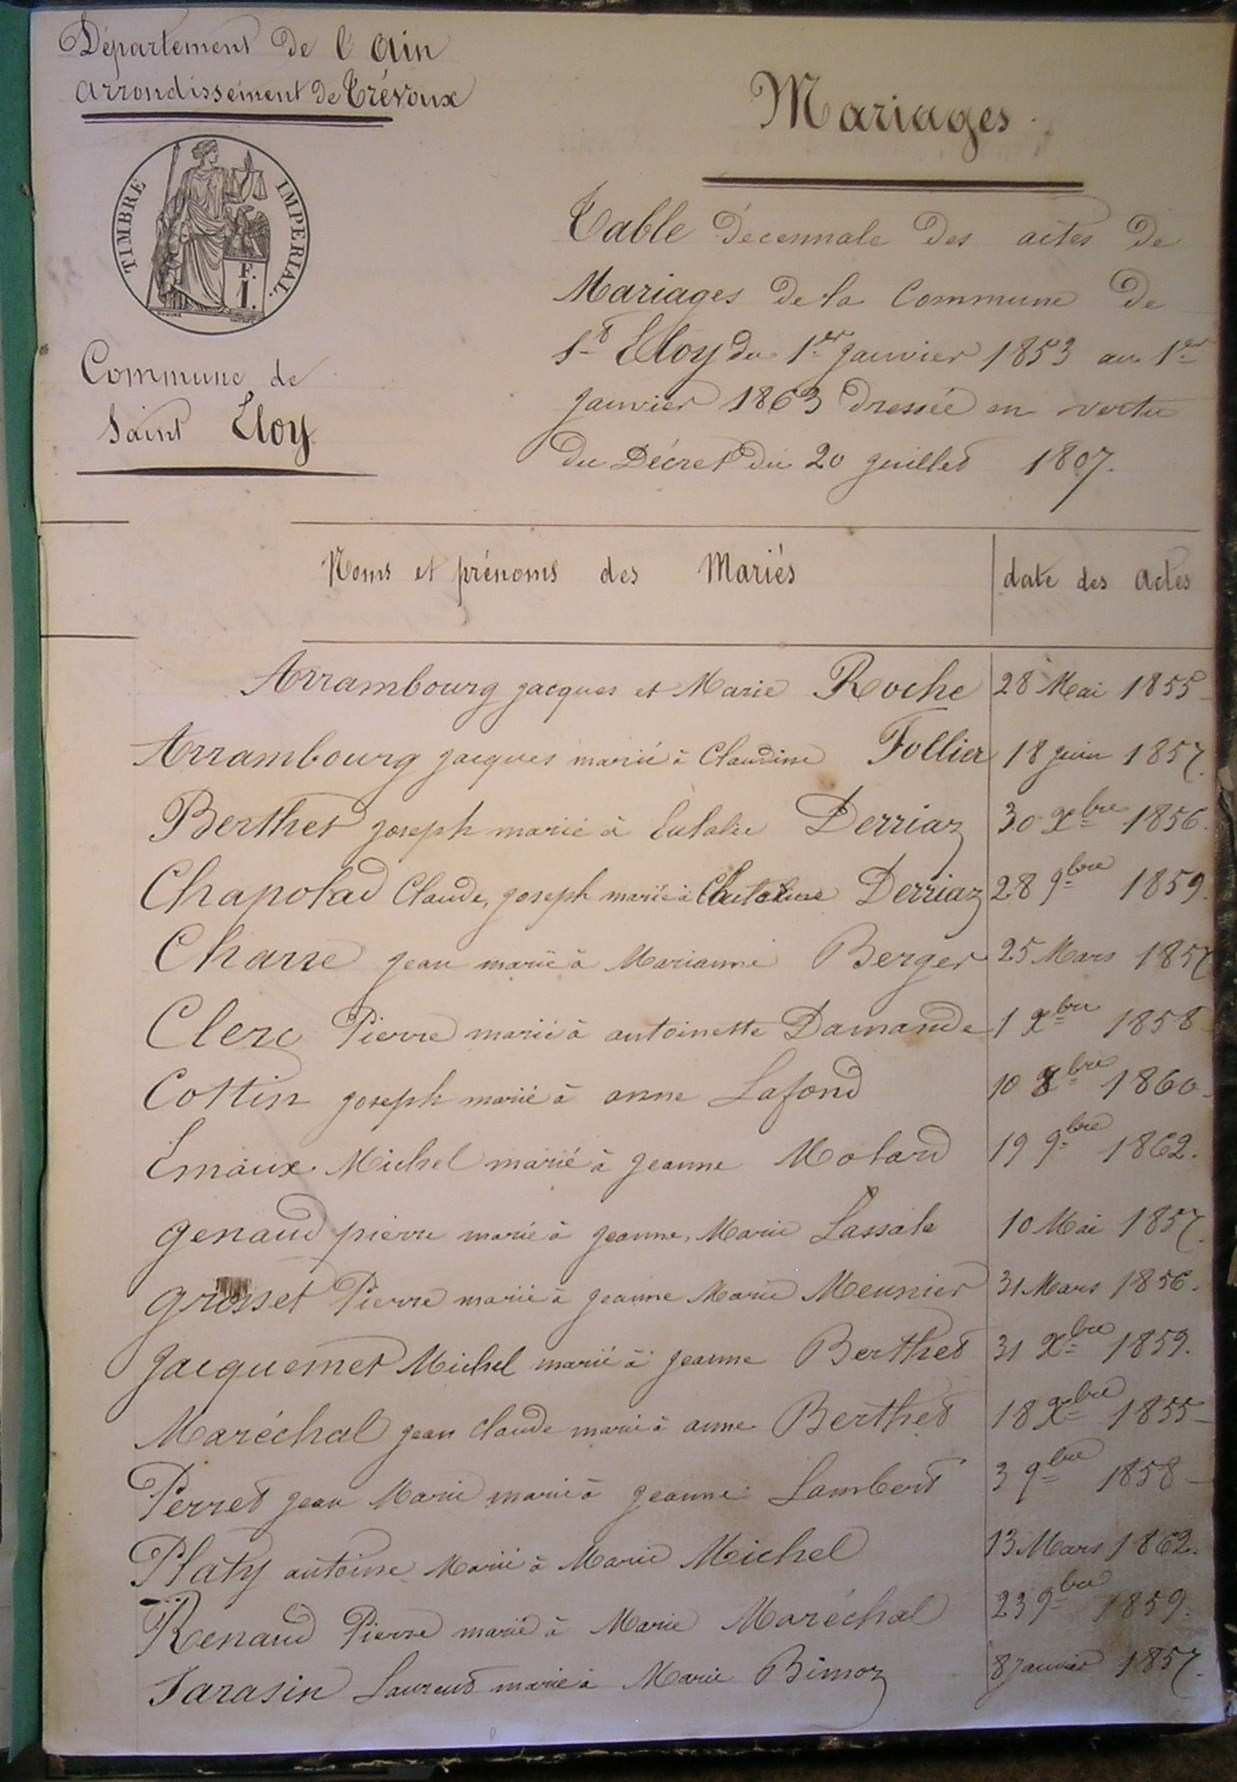 Département de l'Ain
Arrondissement de Trévoux
TIMBRE IMPERIAL.
F.
1.
Commune de
Saint Eloy
Mariages
Table décennale des actes de
Mariages de la Commune de
St Eloy du 1er Janvier 1853 au 1er
Janvier 1863 dressée en vertu
du Décret du 20 Juillet 1807.
Noms et prénoms des Mariés date des actes
Arrambourg Jacques et Marie Roche 28 Mai 1855
Arrambourg Jacques marié à Claudine Follier 18 Juin 1857.
Berthet Joseph marié à Eulalie Derriaz 30 Xbre 1856.
Chapolad Claude, Joseph marié à Derriaz 28 9bre 1859.
Charre Jean marié à Marianne Berger 25 Mars 1857
Clerc Pierre marié à antoinette Damande 1 Xbre 1858
Cottin Joseph marié à anne Lafond 10 Xbre 1860
Emaux Michel marié à Jeanne Molard 19 9bre 1862.
Genaud pierre marié à Jeanne, Marie Lassale 10 Mai 1857.
Grosset Pierre marié à Jeanne Marie Meunier 31 Mars 1856.
Jacquemet Michel marié à Jeanne Berthet 31 Xbre 1859.
Maréchal Jean Claude marié à anne Berthet 18 Xbre 1855
Perret Jean Marie marié à Jeanne Lambert 3 9bre 1858
Platy antoine Marié à Marie Michel 13 Mars 1862.
Renaud Pierre marié à Marie Maréchal 23 9bre 1859.
Sarasin Laurent marié à Marie Bimoz 8 Janvier 1857.